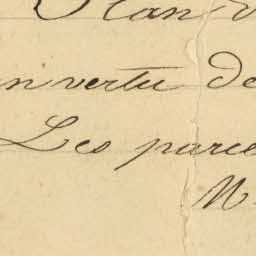 Plan d
en vertu de
Les parce
N